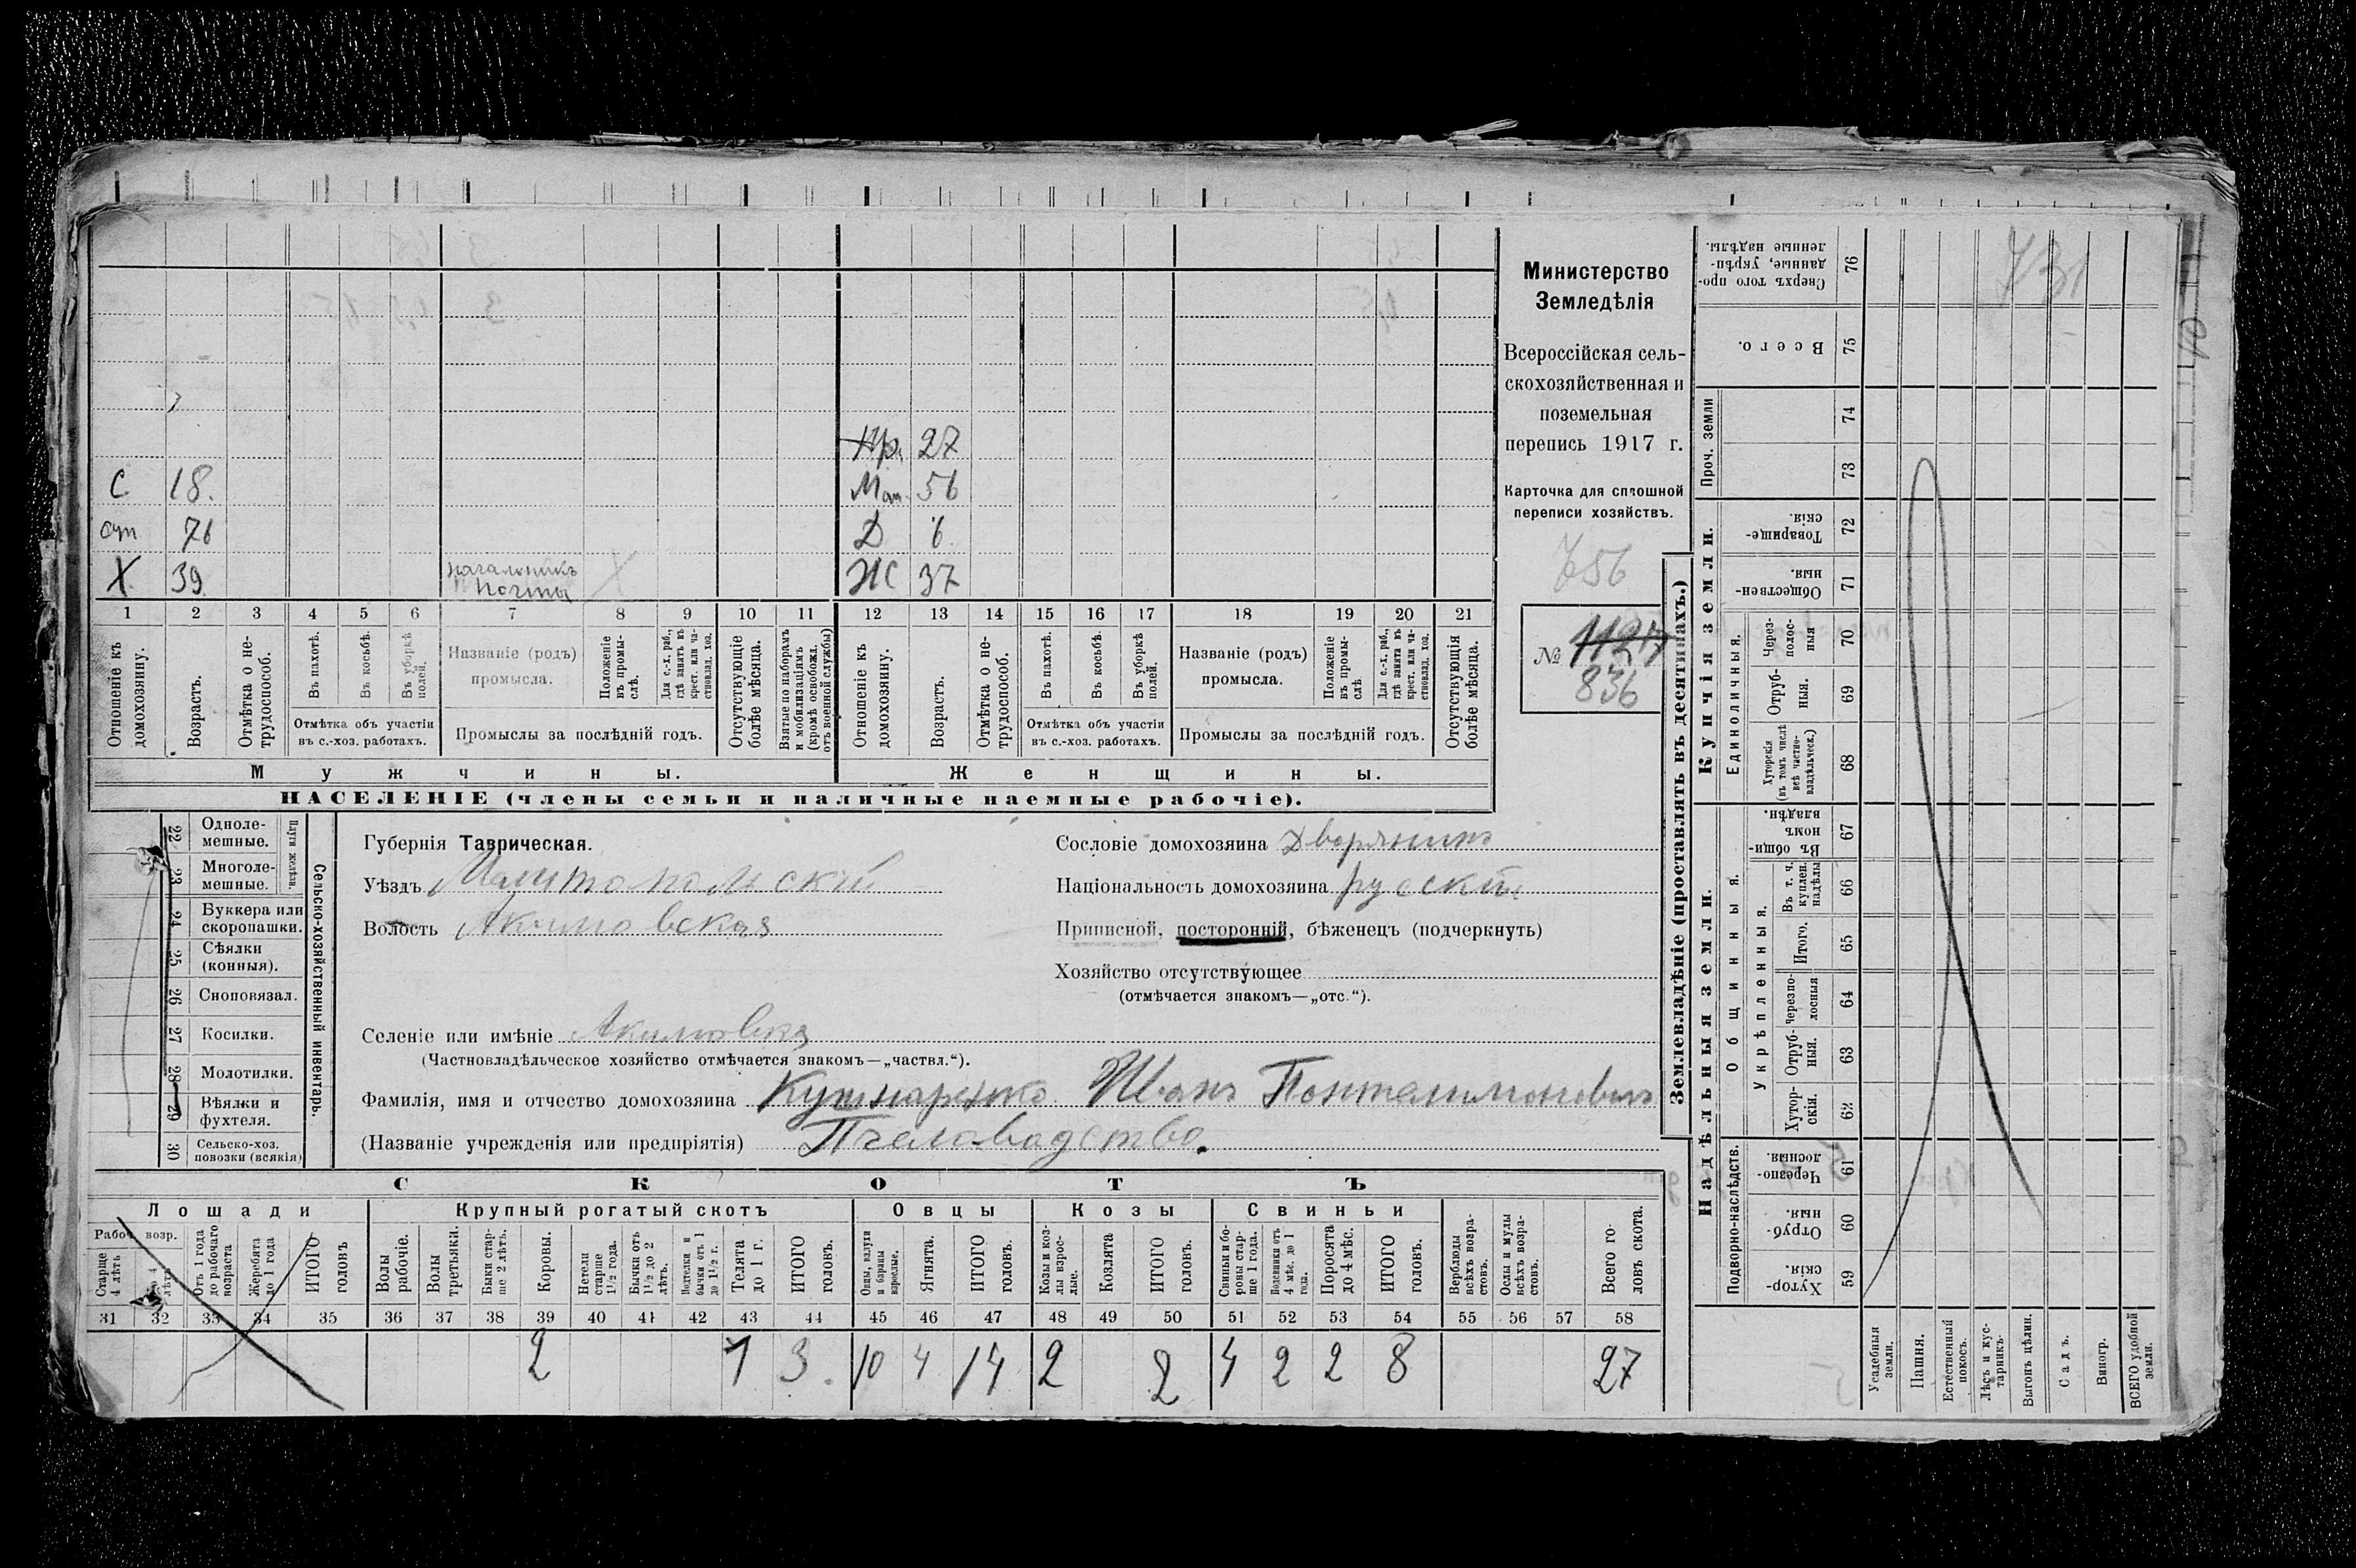 Министерство
Земледѣлія
Всероссійская сель-
скохозяйственная и
поземельная
перепись 1917 г.
Карточка для сплошной
переписи хозяйствъ.
756
№ 1127
836
Нр. 27
С 18. Мат. 56
отц 76 Д 6
Х 39. начальникъ почты Х Ж 37
1 2 3 4 5 6 7 8 9 10 11 12 13 14 15 16 17 18 19 20 21
Отношеніе къ домохозяину.
Возрастъ.
Отмѣтка о не-трудоспособ.
Въ пахотѣ.
Въ косьбѣ.
Въ уборкѣ полей.
Отмѣтка объ участіи въ с.-хоз. работахъ.
Названіе (родъ) промысла.
Положеніе въ промы-слѣ.
Для с.-х. раб., гдѣ занятъ въ крест. или ча-стновлад. хоз.
Промыслы за послѣдній годъ.
Отсутствующіе болѣе мѣсяца.
Взятые по наборамъ и мобилизаціямъ (кромѣ освобожд. отъ военной службы)
Отношеніе къ домохозяину.
Возрастъ.
Отмѣтка о не-трудоспособ.
Въ пахотѣ.
Въ косьбѣ.
Въ уборкѣ полей.
Отмѣтка объ участіи въ с.-хоз. работахъ.
Названіе (родъ) промысла.
Положеніе въ промы-слѣ
Для с.-х. раб., гдѣ занята въ крест. или ча-стновлад. хоз.
Промыслы за послѣдній годъ.
Отсутствующія болѣе мѣсяца.
Мужчины. Женщины.
НАСЕЛЕНІЕ (члены семьи и наличные наемные рабочіе).
Сельско-хозяйственный инвентарь.
Плуги желѣзн.
22 Одноле-мешные.
23 Многоле-мешные.
24 Буккера или скоропашки.
25 Сѣялки (конныя).
26 Сноповязал.
27 Косилки.
28 Молотилки.
29 Вѣялки и фухтеля.
30 Сельско-хоз. повозки (всякія)
Губернія Таврическая.
Уѣздъ Мелитопольскій
Волость Акимовская
Сословіе домохозяина Дворянинъ
Національность домохозяина русскій
Приписной, посторонній, бѣженецъ (подчеркнуть)
Хозяйство отсутствующее
(отмѣчается знакомъ—„отс.“).
Селеніе или имѣніе Акимовка
(Частновладѣльческое хозяйство отмѣчается знакомъ—„частвл.“).
Фамилія, имя и отчество домохозяина Кушнаренко Иванъ Понтелимоновичъ
(Названіе учрежденія или предпріятія) Пчеловодство.
СКОТЪ
Лошади Крупный рогатый скотъ Овцы Козы Свиньи
Рабоч. возр.
Старше 4 лѣтъ
До 4 лѣтъ
Отъ 1 года до рабочаго возраста
Жеребята до 1 года
ИТОГО головъ
Волы рабочіе.
Волы третьяки.
Быки стар-ше 2 лѣтъ.
Коровы.
Нетели старше 1½ года.
Бычки отъ 1½ до 2 лѣтъ.
Подтелки и бычки отъ 1 до 1½ г.
Телята до 1 г.
ИТОГО головъ.
Овцы, валухи и бараны взрослые.
Ягнята.
ИТОГО головъ.
Козы и коз-лы взрос-лые.
Козлята
ИТОГО головъ.
Свиньи и бо-ровы стар-ше 1 года.
Подсвинки отъ 4 мѣс. до 1 года.
Поросята до 4 мѣс.
ИТОГО головъ.
Верблюды всѣхъ возра-стовъ.
Ослы и мулы всѣхъ возра-стовъ.
Всего го-ловъ скота.
31 32 33 34 35 36 37 38 39 40 41 42 43 44 45 46 47 48 49 50 51 52 53 54 55 56 57 58
2 1 3. 10 4 14 2 2 4 2 2 8 27
Землевладѣніе (проставлять въ десятинахъ.)
Надѣльныя земли.
Купчія земли.
Проч. земли
Подворно-наслѣдств.
Общинныя.
Укрѣпленныя.
Единоличныя.
Сверхъ того про-данные, укрѣп-ленные надѣлы. 76
Всего. 75
74
73
Товарище-скія. 72
Обществен-ныя. 71
Через-полос-ныя 70
Отруб-ныя. 69
Хуторскія (въ томъ числѣ всѣ частно-владѣльческ.) 68
Въ общи-номъ владѣн. 67
Въ т. ч. куплен. надѣлы 66
Итого. 65
Черезпо-лосныя 64
Отруб-ныя. 63
Хутор-скія. 62
Черезпо-лосныя. 61
Отруб-ныя. 60
Хутор-скія. 59
Усадебныя земли.
Пашня.
Естественный покосъ.
Лѣсъ и кус-тарникъ.
Выгонъ цѣлин.
Садъ.
Виногр.
ВСЕГО удобной земли.
731